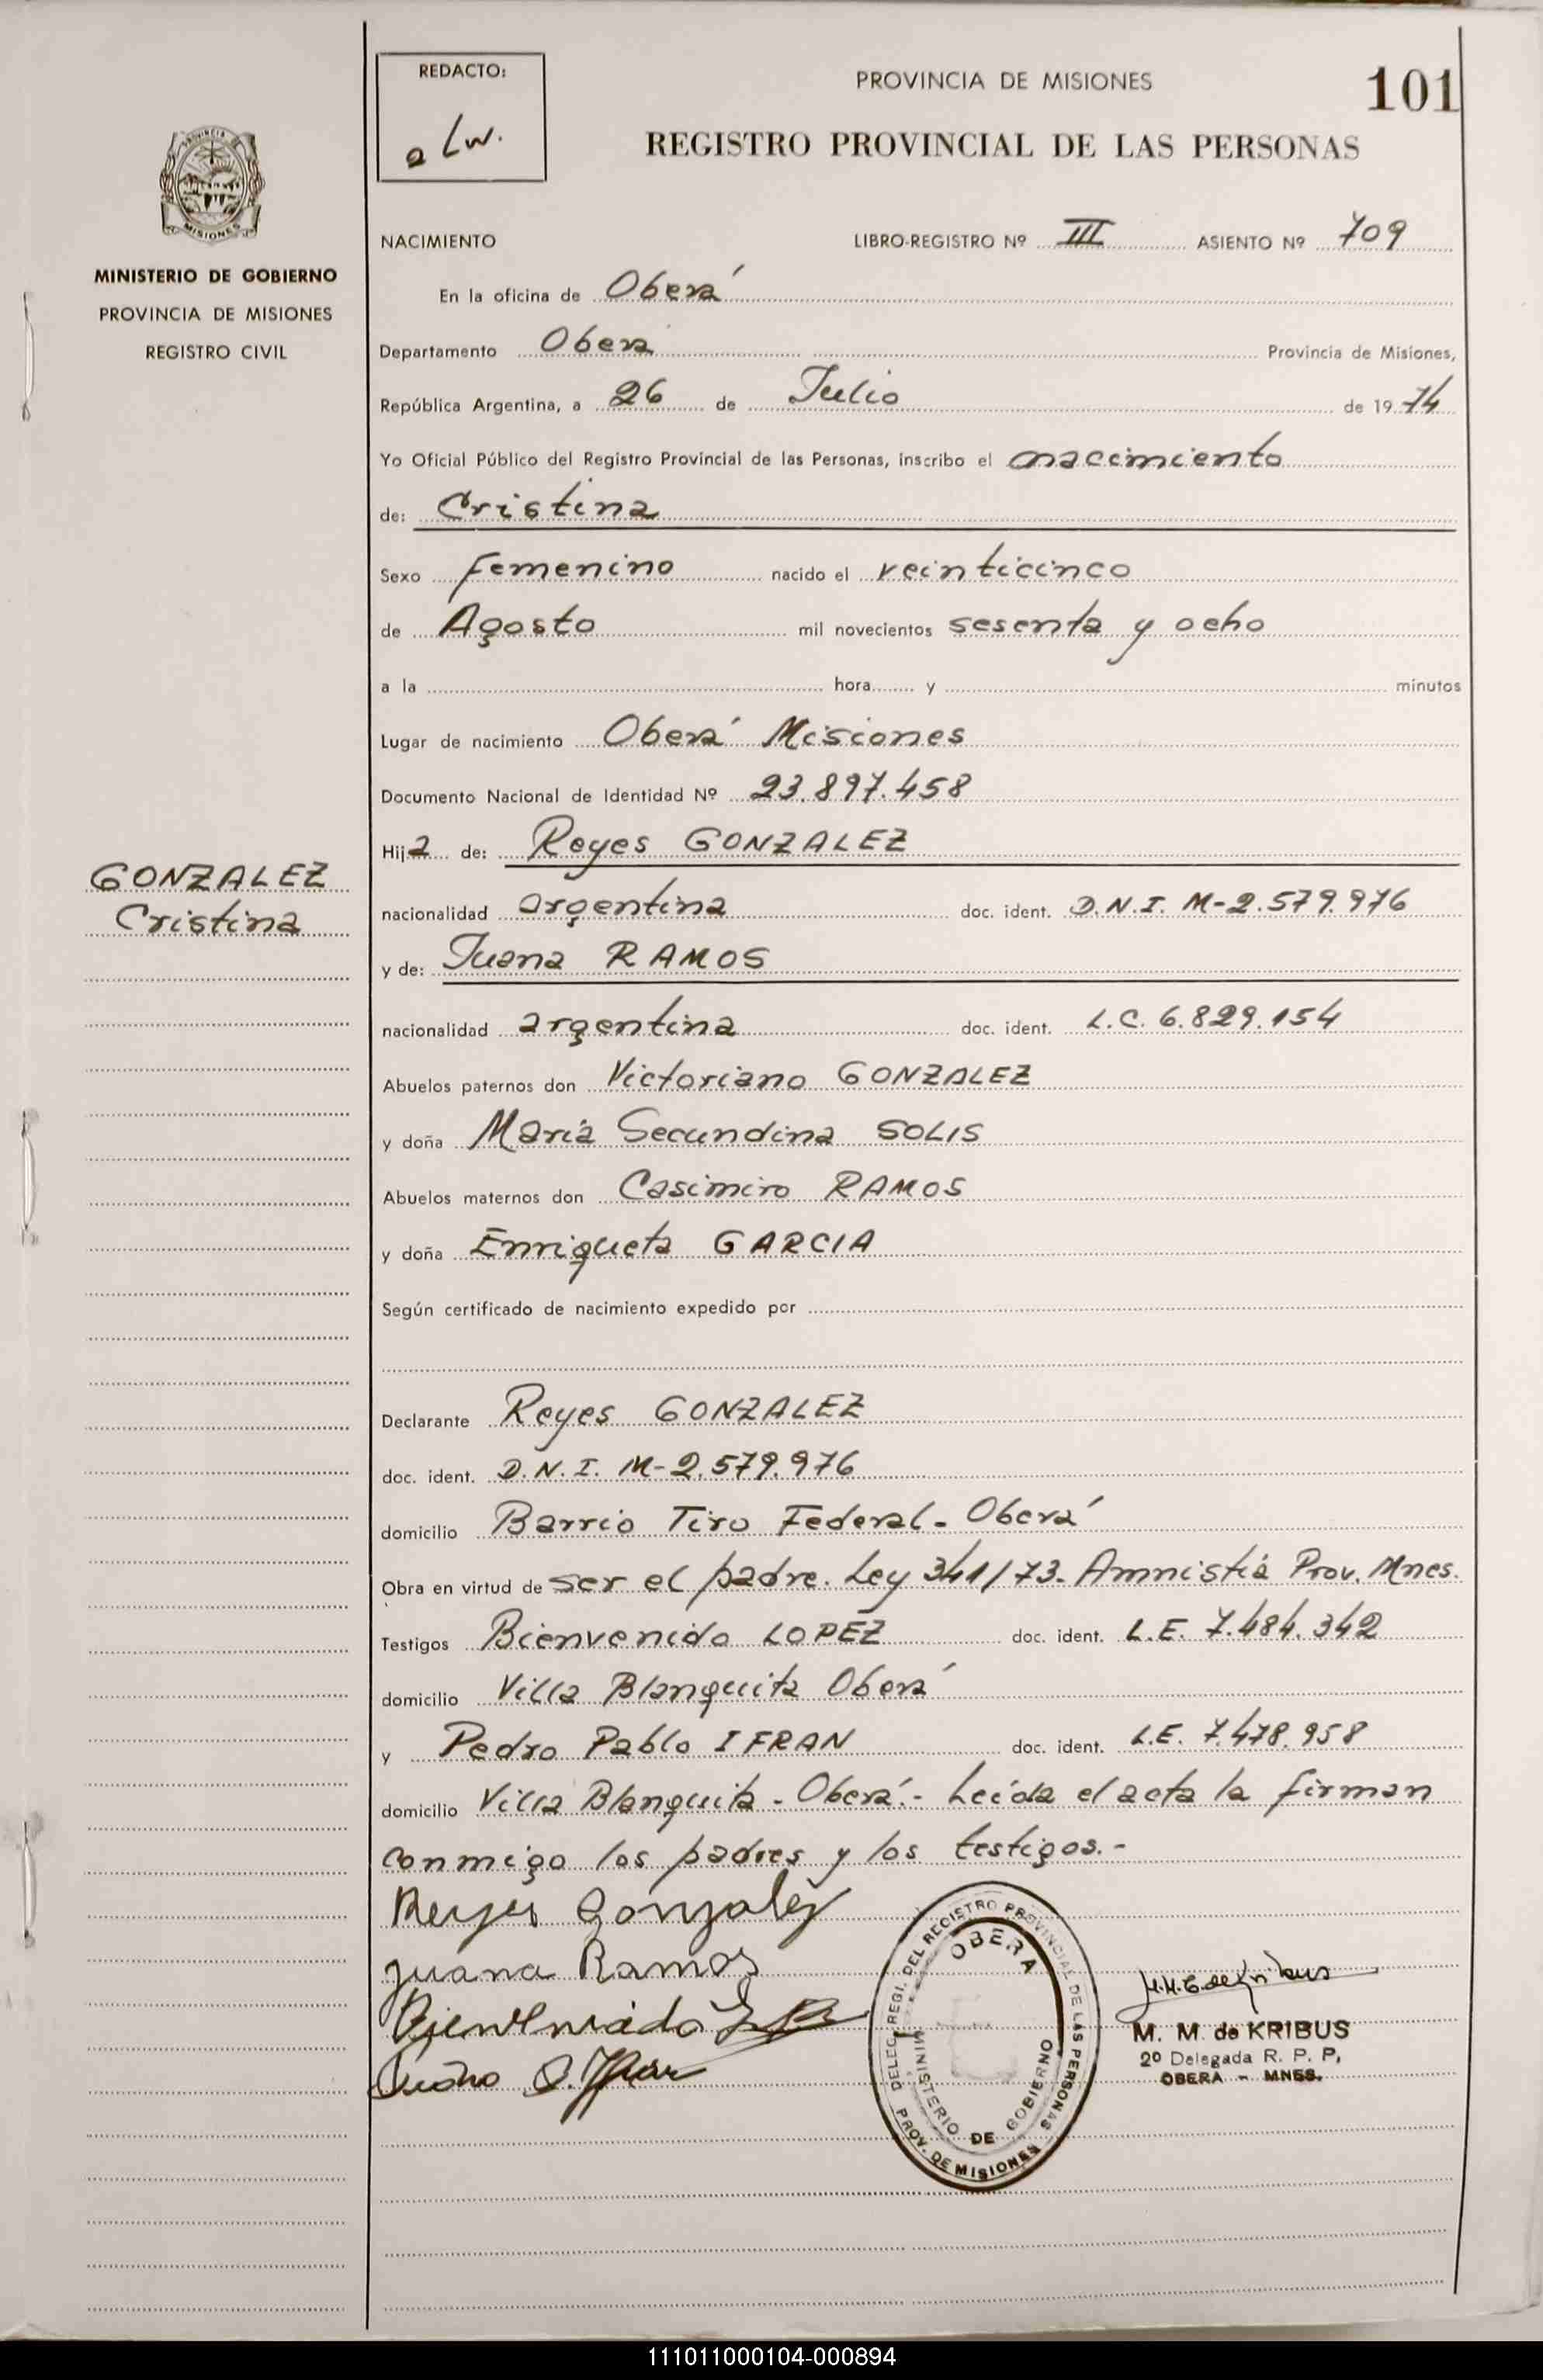 REDACTO:
a Lw.
PROVINCIA DE MISIONES
101
REGISTRO PROVINCIAL DE LAS PERSONAS
MISIONES
MINISTERIO DE GOBIERNO
PROVINCIA DE MISIONES
REGISTRO CIVIL
NACIMIENTO LIBRO-REGISTRO Nº III ASIENTO Nº 709
En la oficina de Oberá
Departamento Obera Provincia de Misiones,
República Argentina, a 26 de Julio de 1974
Yo Oficial Público del Registro Provincial de las Personas, inscribo el nacimiento
de: Cristina
Sexo femenino nacido el veinticinco
de Agosto mil novecientos sesenta y ocho
a la hora y minutos
Lugar de nacimiento Oberá Misiones
Documento Nacional de Identidad Nº 23.897.458
Hija de: Reyes GONZALEZ
GONZALEZ
Cristina
nacionalidad argentina doc. ident. D.N.I. M-2.579.976
y de: Juana RAMOS
nacionalidad argentina doc. ident. L.C. 6.829.154
Abuelos paternos don Victoriano GONZALEZ
y doña Maria Secundina SOLIS
Abuelos maternos don Casimiro RAMOS
y doña Enriqueta GARCIA
Según certificado de nacimiento expedido por
Declarante Reyes GONZALEZ
doc. ident. D.N.I. M-2.579.976
domicilio Barrio Tiro Federal - Oberá
Obra en virtud de ser el padre. Ley 341/73- Amnistia Prov. Mnes.
Testigos Bienvenido LOPEZ doc. ident. L.E. 7.484.342
domicilio Villa Blanquita Oberá
y Pedro Pablo IFRAN doc. ident. L.E. 7.478.958
domicilio Villa Blanquita - Oberá.- Leída el acta la firman
conmigo los padres y los testigos.-
Reyes Gonzalez
Juana Ramos
Bienvenido
DELEG. REGI. DEL REGISTRO PROVINCIAL DE LAS PERSONAS
OBERA
MINISTERIO DE GOBIERNO
PROV. DE MISIONES
M. M. de KRIBUS
2º Delegada R. P. P,
OBERA - MNES.
111011000104-000894